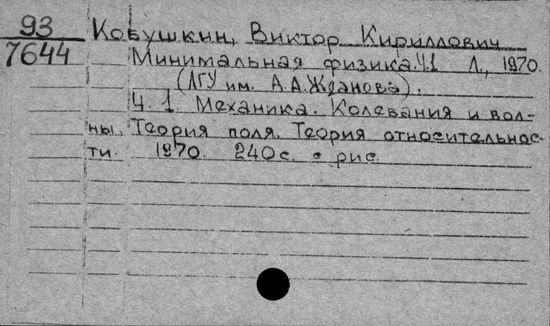 93
7644
Кобушкин, Виктор Кириллович
Минимальная физика. Ч.1 Л., 1970.
(ЛГУ им. А.А.Жданова).
Ч. 1. Механика. Колебания и вол-
ны. Теория поля. Теория относительнос-
ти. 1970. 240 с. с рис.